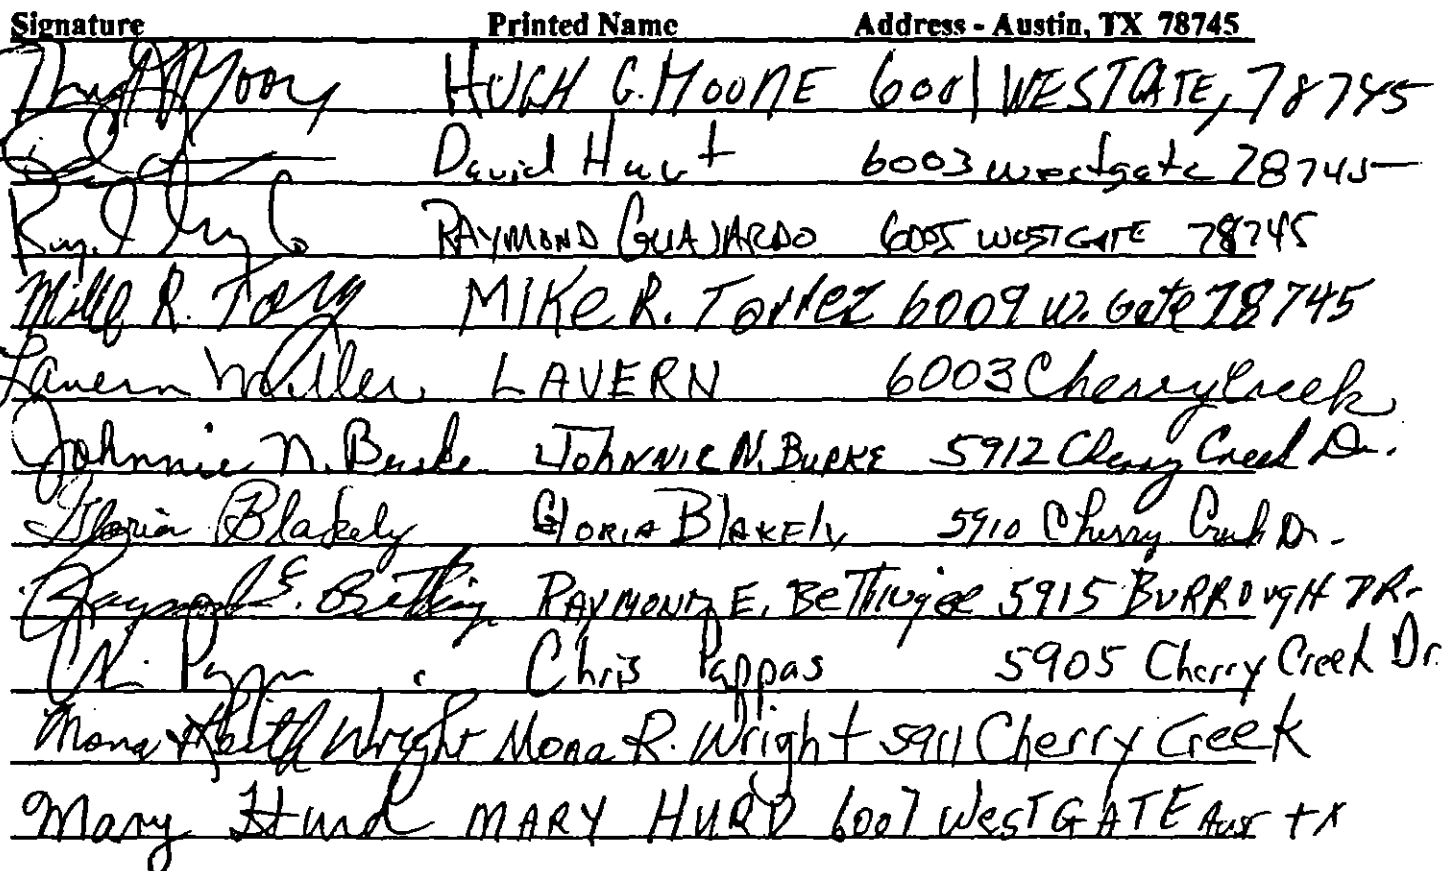 Signature Printed Name Address - Austin, TX 78745
HUGH G. MOORE 6001 WESTGATE, 78745
David Hurt 6003 westgate 78745
RAYMOND GUAJARDO 6005 WESTGATE 78745
R. MIKE R. Torrez 6009 W. Gate 78745
Lavern Miller LAVERN 6003 Cherry Creek
Johnnie N. Burke JOHNNIE N. BURKE 5912 Cherry Creek Dr.
Gloria Blakely GLORIA BLAKELY 5910 Cherry Creek Dr.
Raymond E. RAYMOND E. 5915 BURROUGH DR.
Chris Pappas 5905 Cherry Creek Dr.
Mona Wright Mona R. Wright 5911 Cherry Creek
Mary Hurd MARY HURD 6007 WESTGATE Aus TX